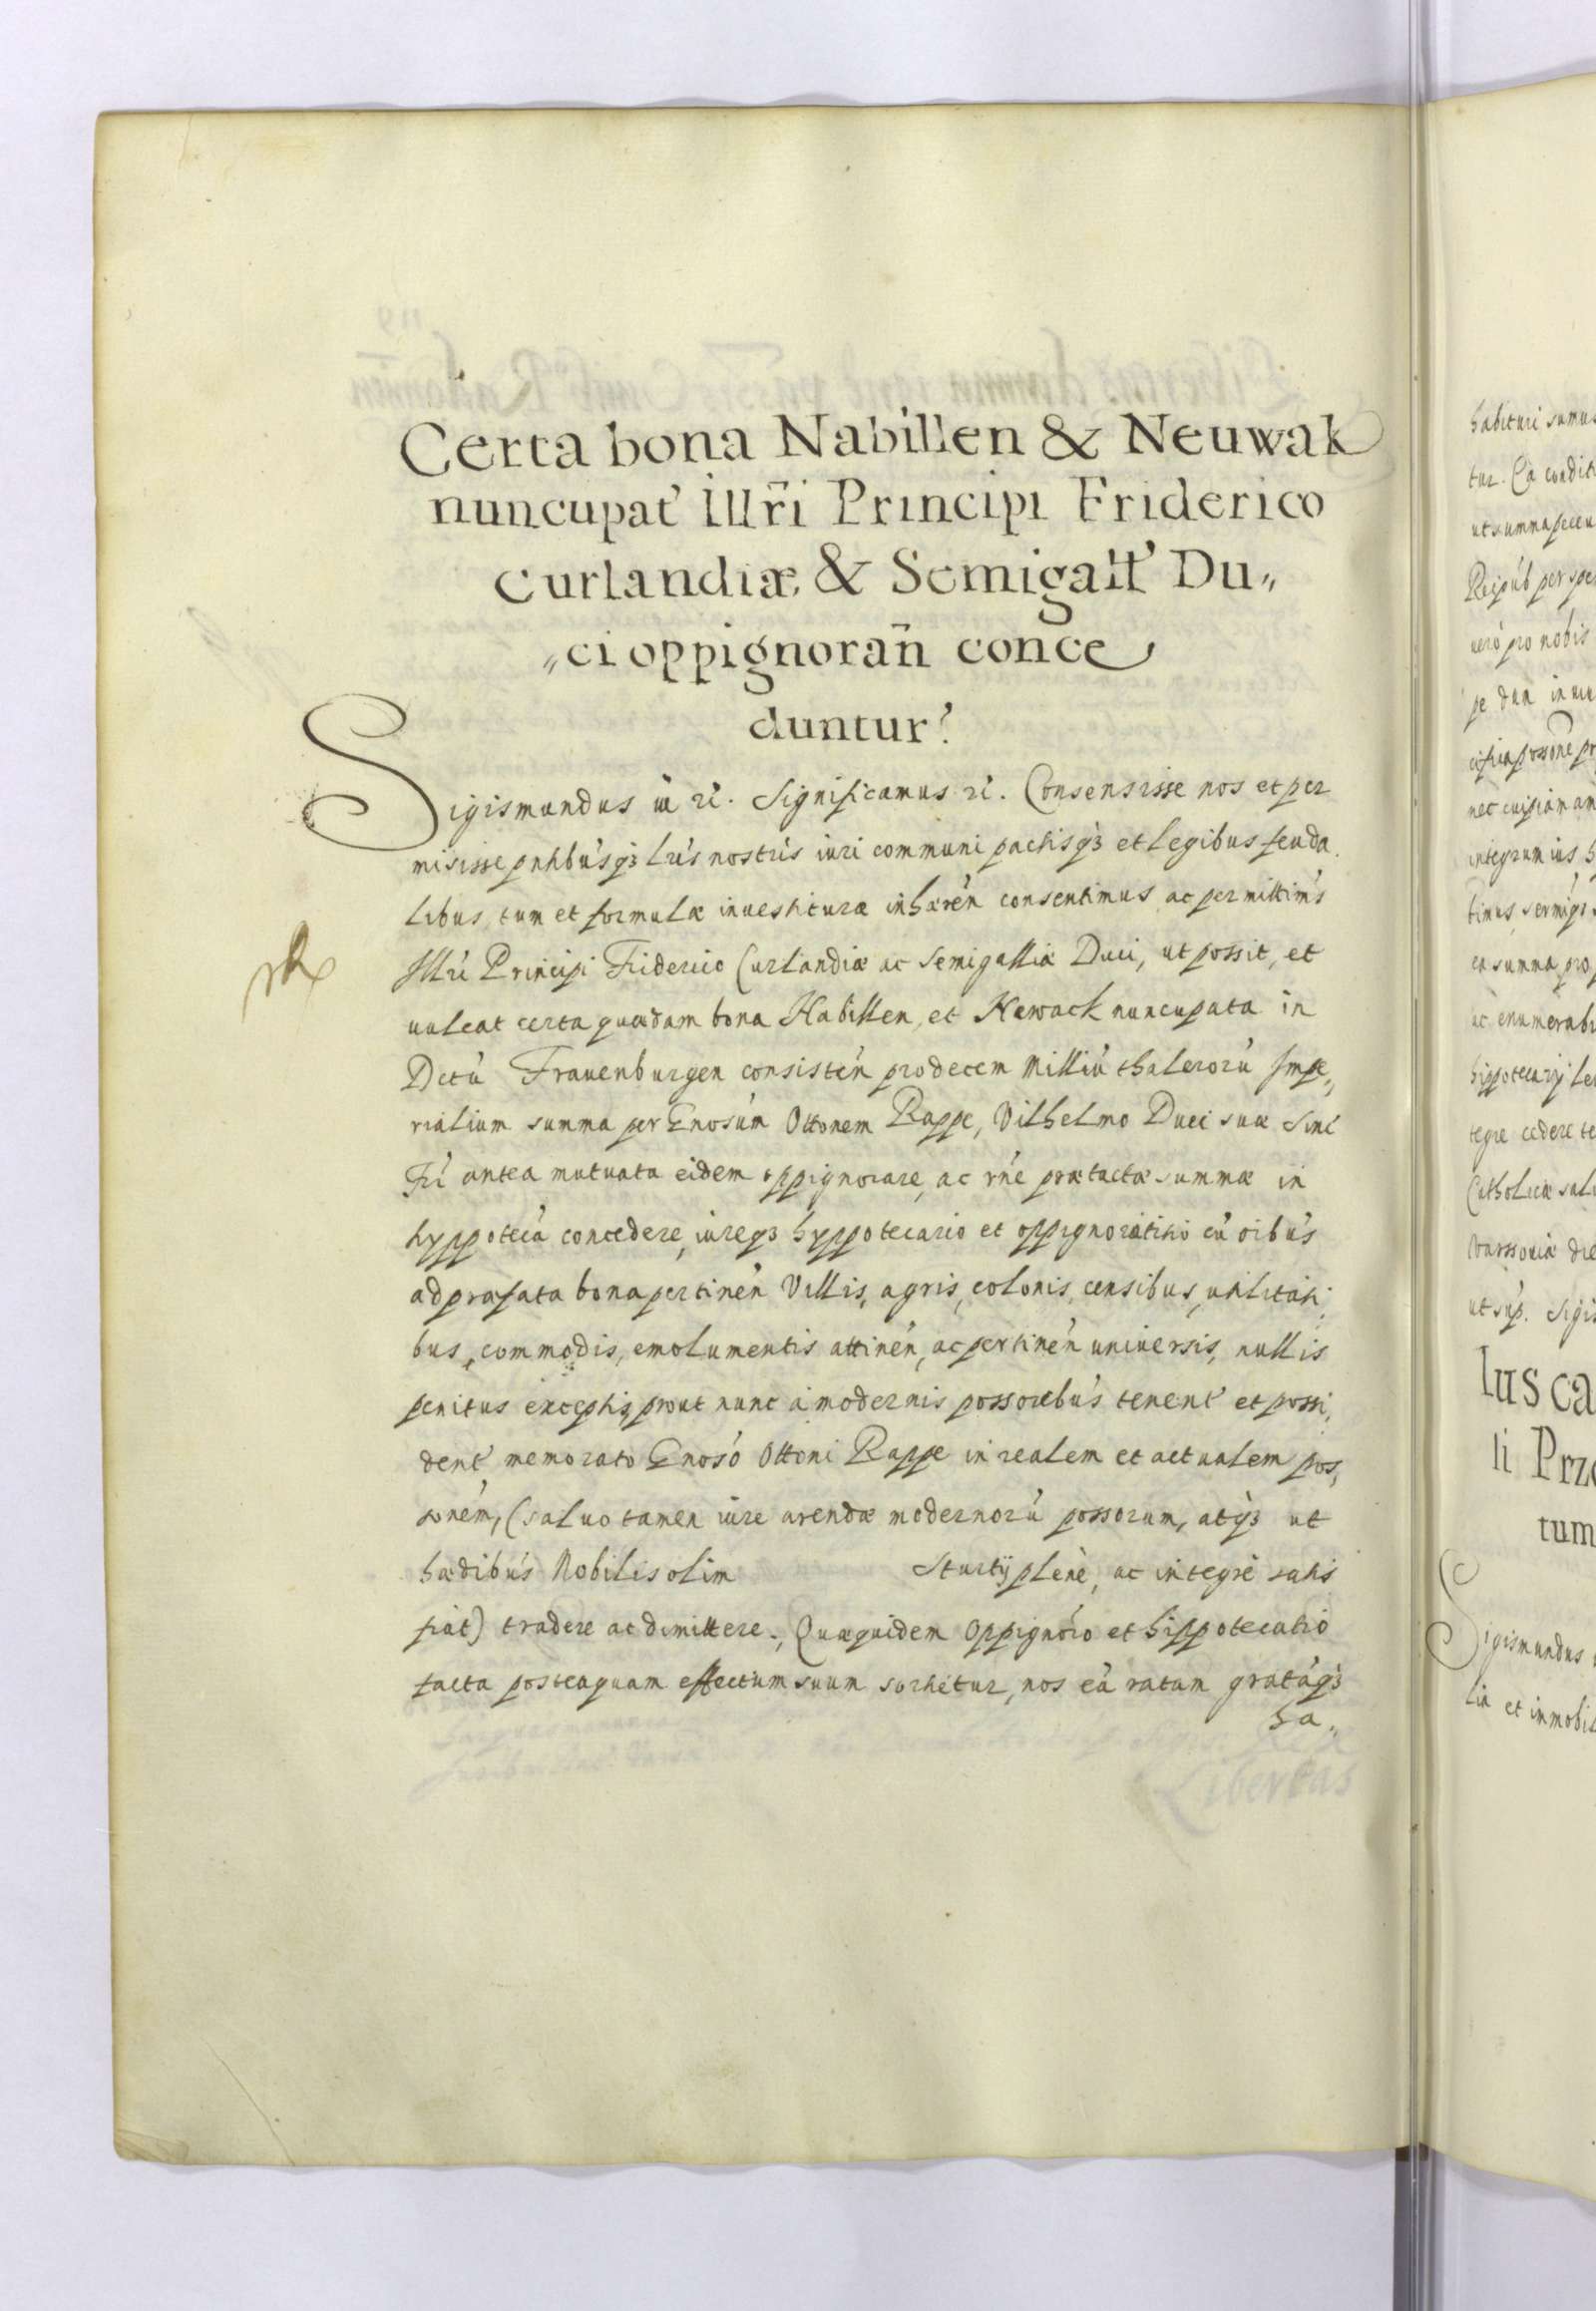 Certa bona Nabillen & Neuwak
nuncupat' Illr̃i Principi Friderico
Curlandiæ & Semigall' Du„
„ci oppignorañ conce
duntur?
Sigismundus iii etc. Significamus etc. Consensisse nos et per
misisse pntibus'q3 lris nostris iuri communi pactisq3 et legibus feuda„
libus, tum et formulæ inuestituræ inhæren' consentimus ac permittim's
Illri Principi Friderico Curlandiæ ac Semigalliæ Duci, ut possit, et
ualeat certa quædam bona Habillen, et Newack nuncupata in
Dctu Frauenburgen consisten' pro decem Milliu' thaleroru' Impe„
rialium summa per Gnosum Ottonem Rappe, Vilhelmo Duci suæ Sinc
Fri antea mutuata eidem oppignorare, ac rñe prætactæ summæ in
hyppotecà concedere, iureq3 hyppotecario et oppignoratitio cu' oibus
ad præfata bona pertinen' Villis, agris, colonis, censibus, utilitati„
bus, commodis, emolumentis attinen', ac pertinen' uniuersis, nullis
penitus exceptis, prout nunc à modernis possoribus tenent' et possi„
dent' memorato Gnoso Ottoni Rappe in realem et actualem pos„
sonem, (saluo tamen iure arendæ modernoru' possorum, atq3 ut
hædibus Nobilis olim Sturtij plenè, ac integrè satis
fiat) tradere ac dimittere. Quæquidem oppignoro et hippotecatio
facta posteaquam effectum suum sortietur, nos eà ratam gratàq3
ha„
Libertas
habituri sumus
tur. Ea condit
ut summa pecu
Reipub per spe
uerò pro nobis
nec cuipiam am
integrum ius h
ea summa pro p
ac enumerabi
hippotecarij
tegre cedere te
Catholicæ salu
Varssouiæ die
ut sup. Sigis
Ius ca
li Prze
tum
Sigismundus
lia et immobil